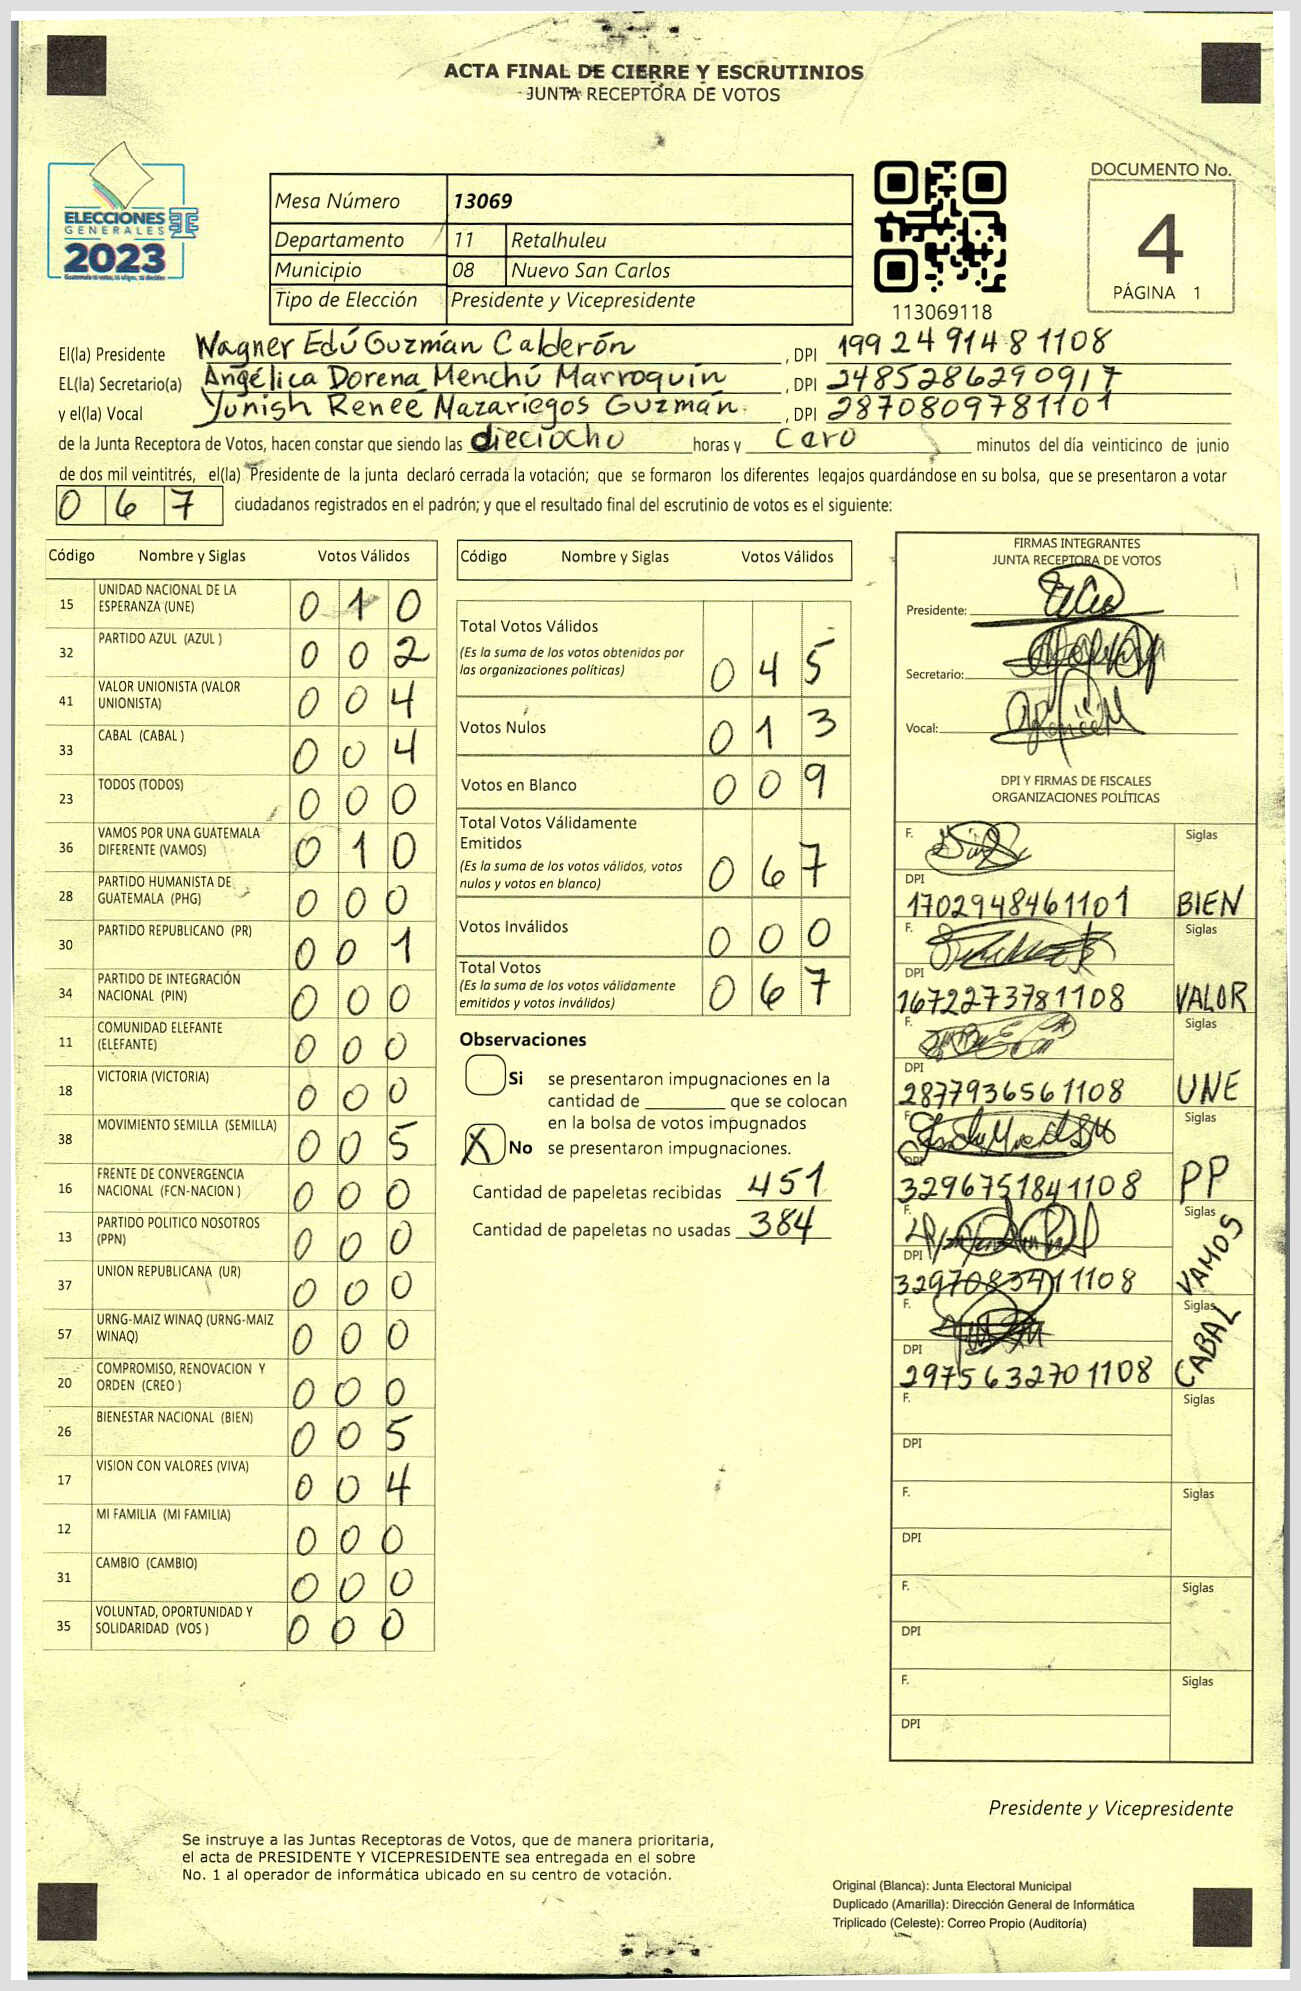 ACTA FINAL DE CIERRE Y ESCRUTINIOS
JUNTA RECEPTORA DE VOTOS
ELECCIONES
GENERALES
2023
Mesa Número 13069
Departamento 11 Retalhuleu
Municipio 08 Nuevo San Carlos
Tipo de Elección Presidente y Vicepresidente
113069118
DOCUMENTO No.
4
PÁGINA 1
El(la) Presidente Wagner Edú Guzmán Calderón, DPI 1992491481108
EL(la) Secretario(a) Angélica Dorena Menchú Marroquín, DPI 2485286290917
y el(la) Vocal Yunish Renee Mazariegos Guzmán, DPI 2870809781101
de la Junta Receptora de Votos, hacen constar que siendo las dieciocho horas y cero minutos del día veinticinco de junio
de dos mil veintitrés, el(la) Presidente de la junta declaró cerrada la votación; que se formaron los diferentes legajos guardándose en su bolsa, que se presentaron a votar
0 6 7 ciudadanos registrados en el padrón; y que el resultado final del escrutinio de votos es el siguiente:
Código Nombre y Siglas Votos Válidos
15 UNIDAD NACIONAL DE LA ESPERANZA (UNE) 0 1 0
32 PARTIDO AZUL (AZUL ) 0 0 2
41 VALOR UNIONISTA (VALOR UNIONISTA) 0 0 4
33 CABAL (CABAL ) 0 0 4
23 TODOS (TODOS) 0 0 0
36 VAMOS POR UNA GUATEMALA DIFERENTE (VAMOS) 0 1 0
28 PARTIDO HUMANISTA DE GUATEMALA (PHG) 0 0 0
30 PARTIDO REPUBLICANO (PR) 0 0 1
34 PARTIDO DE INTEGRACIÓN NACIONAL (PIN) 0 0 0
11 COMUNIDAD ELEFANTE (ELEFANTE) 0 0 0
18 VICTORIA (VICTORIA) 0 0 0
38 MOVIMIENTO SEMILLA (SEMILLA) 0 0 5
16 FRENTE DE CONVERGENCIA NACIONAL (FCN-NACION ) 0 0 0
13 PARTIDO POLITICO NOSOTROS (PPN) 0 0 0
37 UNION REPUBLICANA (UR) 0 0 0
57 URNG-MAIZ WINAQ (URNG-MAIZ WINAQ) 0 0 0
20 COMPROMISO, RENOVACION Y ORDEN (CREO ) 0 0 0
26 BIENESTAR NACIONAL (BIEN) 0 0 5
17 VISION CON VALORES (VIVA) 0 0 4
12 MI FAMILIA (MI FAMILIA) 0 0 0
31 CAMBIO (CAMBIO) 0 0 0
35 VOLUNTAD, OPORTUNIDAD Y SOLIDARIDAD (VOS ) 0 0 0
Código Nombre y Siglas Votos Válidos
Total Votos Válidos
(Es la suma de los votos obtenidos por
las organizaciones políticas) 0 4 5
Votos Nulos 0 1 3
Votos en Blanco 0 0 9
Total Votos Válidamente
Emitidos
(Es la suma de los votos válidos, votos
nulos y votos en blanco) 0 6 7
Votos Inválidos 0 0 0
Total Votos
(Es la suma de los votos válidamente
emitidos y votos inválidos) 0 6 7
Observaciones
Si se presentaron impugnaciones en la
cantidad de ________ que se colocan
en la bolsa de votos impugnados
X No se presentaron impugnaciones.
Cantidad de papeletas recibidas 451
Cantidad de papeletas no usadas 384
FIRMAS INTEGRANTES
JUNTA RECEPTORA DE VOTOS
Presidente:
Secretario:
Vocal:
DPI Y FIRMAS DE FISCALES
ORGANIZACIONES POLÍTICAS
F. Siglas
DPI 1702948461101 BIEN
F. Siglas
DPI 1672273781108 VALOR
F. Siglas
DPI 2877936561108 UNE
F. Siglas
DPI 3296751841108 PP
F. Siglas
DPI 3297083411108 VAMOS
F. Siglas
DPI 2975632701108 CABAL
F. Siglas
DPI
F. Siglas
DPI
F. Siglas
DPI
F. Siglas
DPI
Presidente y Vicepresidente
Se instruye a las Juntas Receptoras de Votos, que de manera prioritaria,
el acta de PRESIDENTE Y VICEPRESIDENTE sea entregada en el sobre
No. 1 al operador de informática ubicado en su centro de votación.
Original (Blanca): Junta Electoral Municipal
Duplicado (Amarilla): Dirección General de Informática
Triplicado (Celeste): Correo Propio (Auditoría)